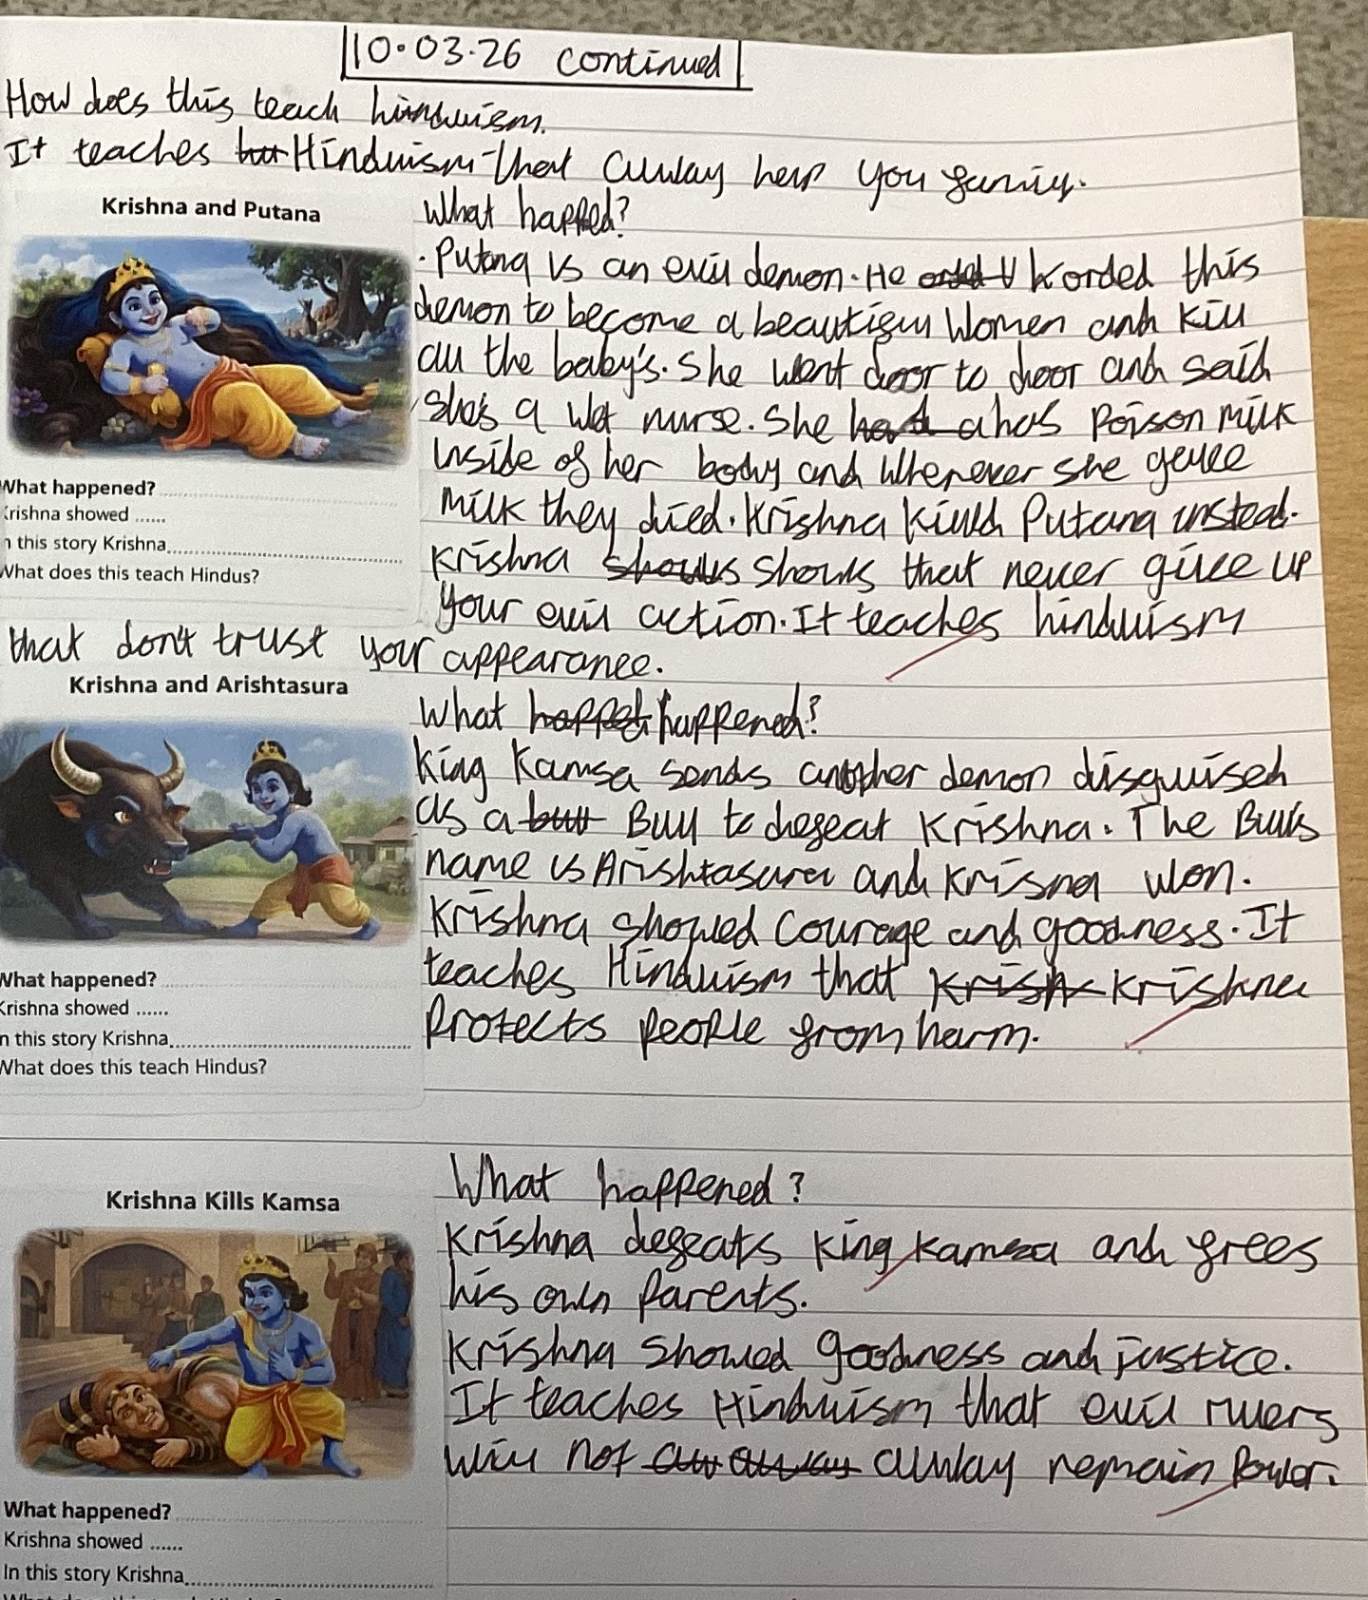 10.03.26 continued
How does this teach hinduism.
It teaches Hinduism that allway help you family.
Krishna and Putana
What happed?
. Putana is an evil demon. He korded this
demon to become a beautiful women and kill
all the baby's. She went door to door and said
she's a wet nurse. She has Poison milk
inside of her body and whenever she gave
milk they died. Krishna killd Putana instead.
Krishna shows that never give up
your evil action. It teaches hinduism
that don't trust your appearance.
What happened?
Krishna showed ......
n this story Krishna
What does this teach Hindus?
Krishna and Arishtasura
What happened?
King Kamsa sends another demon disguised
as a Bull to defeat Krishna. The Bulls
name is Arishtasura and Krisna won.
Krishna showed courage and goodness. It
teaches Hinduism that Krishna
Protects people from harm.
What happened?
Krishna showed ......
n this story Krishna
What does this teach Hindus?
Krishna Kills Kamsa
What happened?
Krishna defeats King Kamsa and frees
his own parents.
Krishna showed goodness and justice.
It teaches Hinduism that evil rulers
will not allway remain power.
What happened?
Krishna showed ......
In this story Krishna